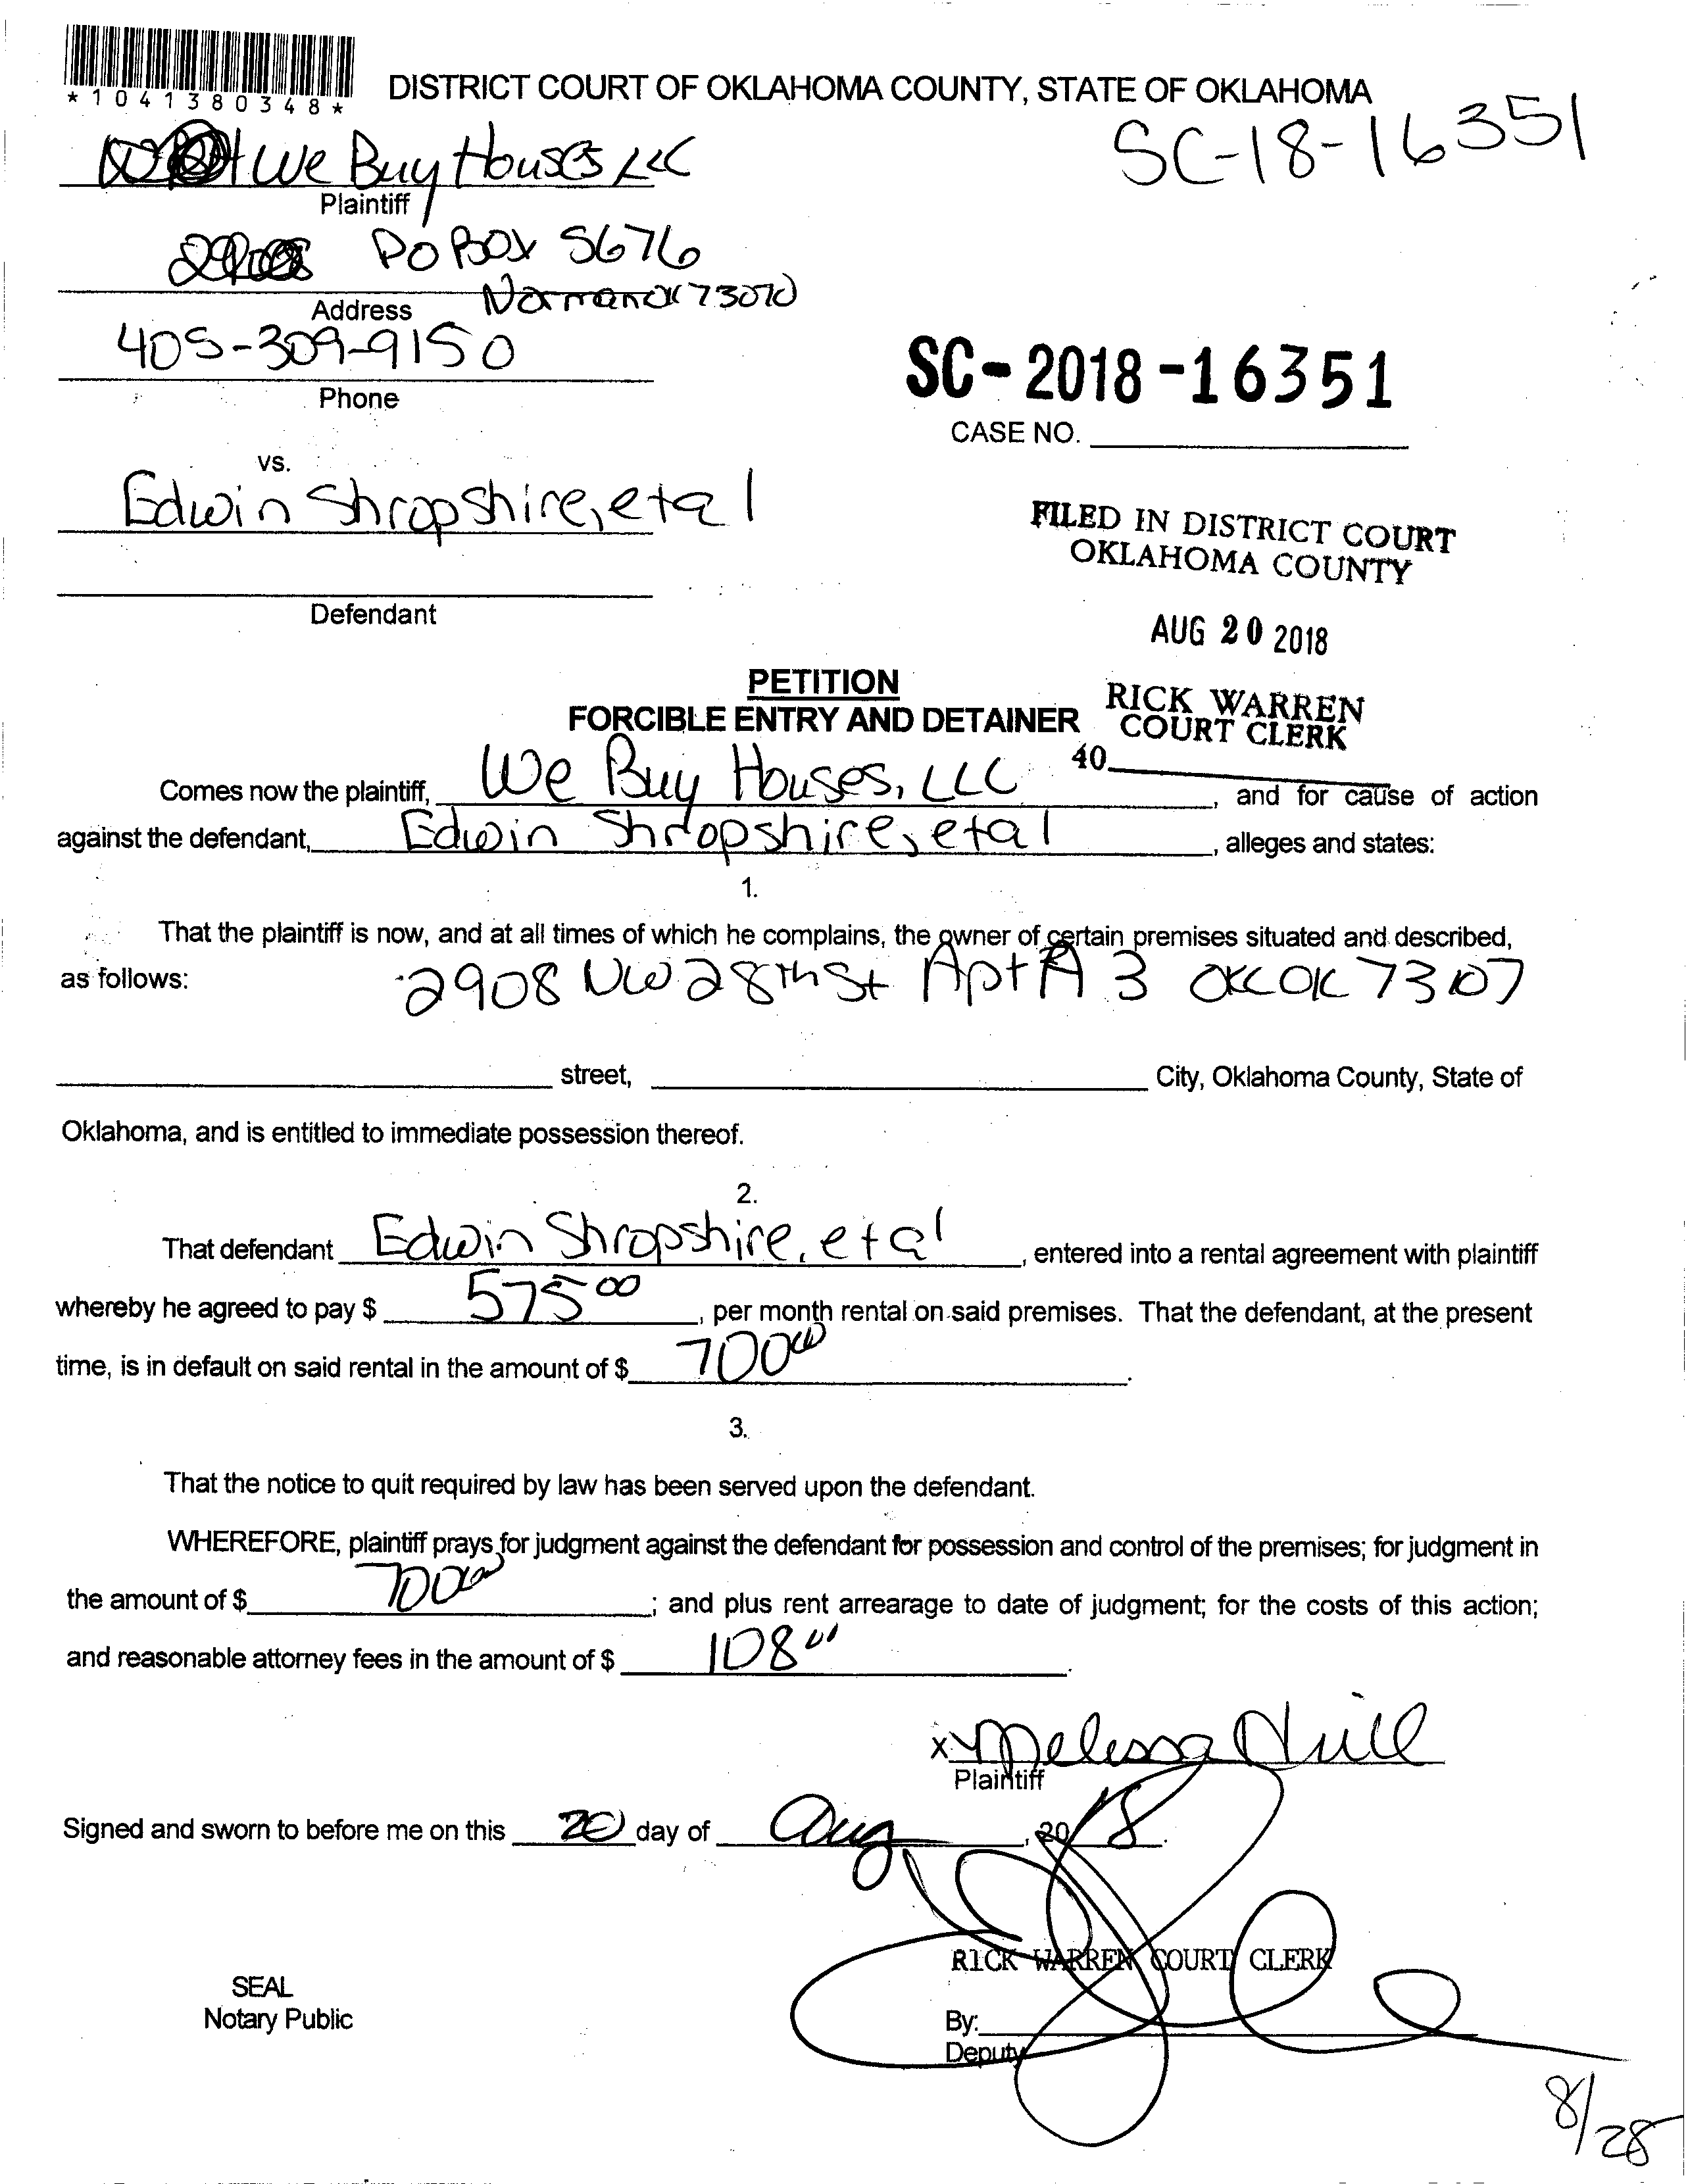 *1041380348*
DISTRICT COURT OF OKLAHOMA COUNTY, STATE OF OKLAHOMA
SC-18-16351
We Buy Houses LLC
Plaintiff
PO Box 5676
Norman OK 73070
Address
405-309-9150
Phone
SC-2018-16351
CASE NO.
vs.
Edwin Shropshire, etal
Defendant
FILED IN DISTRICT COURT
OKLAHOMA COUNTY
AUG 20 2018
RICK WARREN
COURT CLERK
40
PETITION
FORCIBLE ENTRY AND DETAINER
Comes now the plaintiff, We Buy Houses, LLC, and for cause of action
against the defendant, Edwin Shropshire, etal, alleges and states:
1.
That the plaintiff is now, and at all times of which he complains, the owner of certain premises situated and described,
as follows: 2908 NW 28th St Apt A 3 OKC OK 73107
street, City, Oklahoma County, State of
Oklahoma, and is entitled to immediate possession thereof.
2.
That defendant Edwin Shropshire, etal, entered into a rental agreement with plaintiff
whereby he agreed to pay $ 575 00, per month rental on said premises. That the defendant, at the present
time, is in default on said rental in the amount of $ 700 00.
3.
That the notice to quit required by law has been served upon the defendant.
WHEREFORE, plaintiff prays for judgment against the defendant for possession and control of the premises; for judgment in
the amount of $ 700 00; and plus rent arrearage to date of judgment; for the costs of this action;
and reasonable attorney fees in the amount of $ 108 00.
x Melissa Hill
Plaintiff
Signed and sworn to before me on this 20 day of Aug, 2018.
RICK WARREN COURT CLERK
SEAL
Notary Public
By:
Deputy
8/28